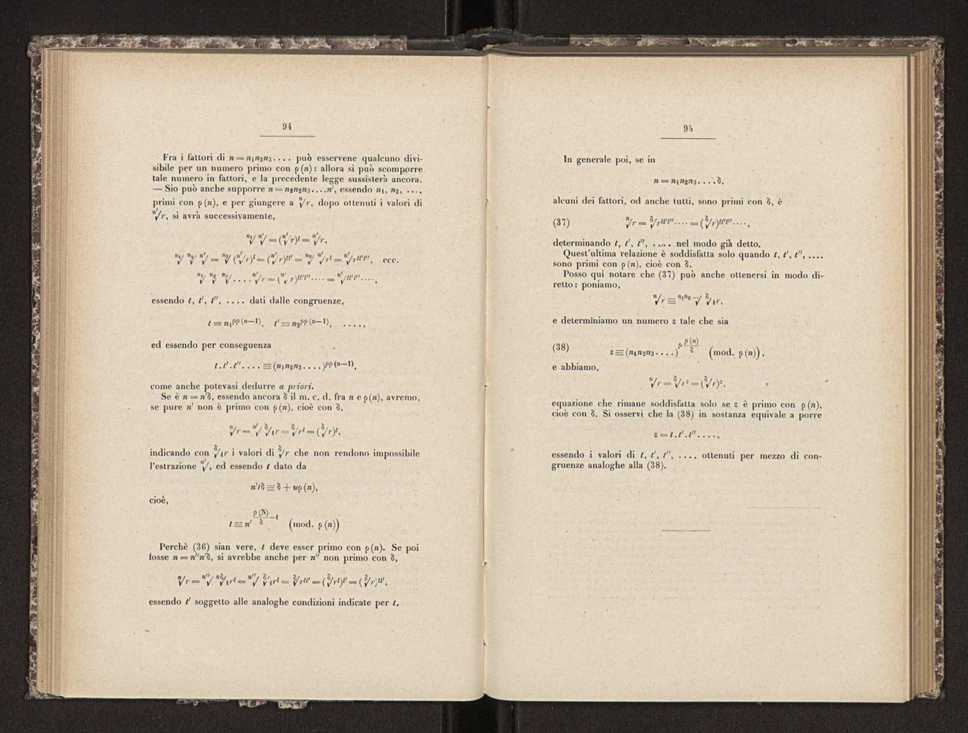 94
Fra i fattori di n = n₁n₂n₃.... può esservene qualcuno divi-
sibile per un numero primo con ρ(n): allora si può scomporre
tale numero in fattori, e la precedente legge sussisterà ancora.
— Sio può anche supporre n = n₂n₂n₃....n′, essendo n₁, n₂, ....,
primi con ρ(n), e per giungere a ⁿ√r, dopo ottenuti i valori di
ⁿ′√r, si avrà successivamente,
ⁿ²√ ⁿ′√ = (ⁿ′√r)ᵗ = ⁿ′√r,
essendo t, t′, t″, .... dati dalle congruenze,
ed essendo per conseguenza
come anche potevasi dedurre a priori.
Se è n = n′δ, essendo ancora δ il m. c. d. fra n e ρ(n), avremo,
se pure n′ non è primo con ρ(n), cioè con δ,
indicando con δ√₁r i valori di δ√r che non rendono impossibile
l'estrazione ⁿ′√, ed essendo t dato da
n′tδ ≡ δ + uρ(n),
cioè,
t ≡ n′^(ρ(N)/δ −1) (mod. ρ(n))
Perchè (36) sian vere, t deve esser primo con ρ(n). Se poi
fosse n = n″n′δ, si avrebbe anche per n″ non primo con δ,
essendo t′ soggetto alle analoghe condizioni indicate per t.
95
In generale poi, se in
n = n₁n₂n₃....δ,
alcuni dei fattori, od anche tutti, sono primi con δ, è
(37) ⁿ√r = δ√r^(tt′t″....) = (δ√r)^(tt′t″....),
determinando t, t′, t″, ..... nel modo già detto.
Quest'ultima relazione è soddisfatta solo quando t, t′, t″, ....
sono primi con ρ(n), cioè con δ.
Posso qui notare che (37) può anche ottenersi in modo di-
retto: poniamo,
e determiniamo un numero z tale che sia
(38) z ≡ (n₁n₂n₃....)^(ρ ρ(n)/δ) (mod. ρ(n)),
e abbiamo,
ⁿ√r = δ√rᶻ = (δ√r)ᶻ,
equazione che rimane soddisfatta solo se z è primo con ρ(n),
cioè con δ. Si osservi che la (38) in sostanza equivale a porre
z = t.t′.t″....,
essendo i valori di t, t′, t″, .... ottenuti per mezzo di con-
gruenze analoghe alla (38).